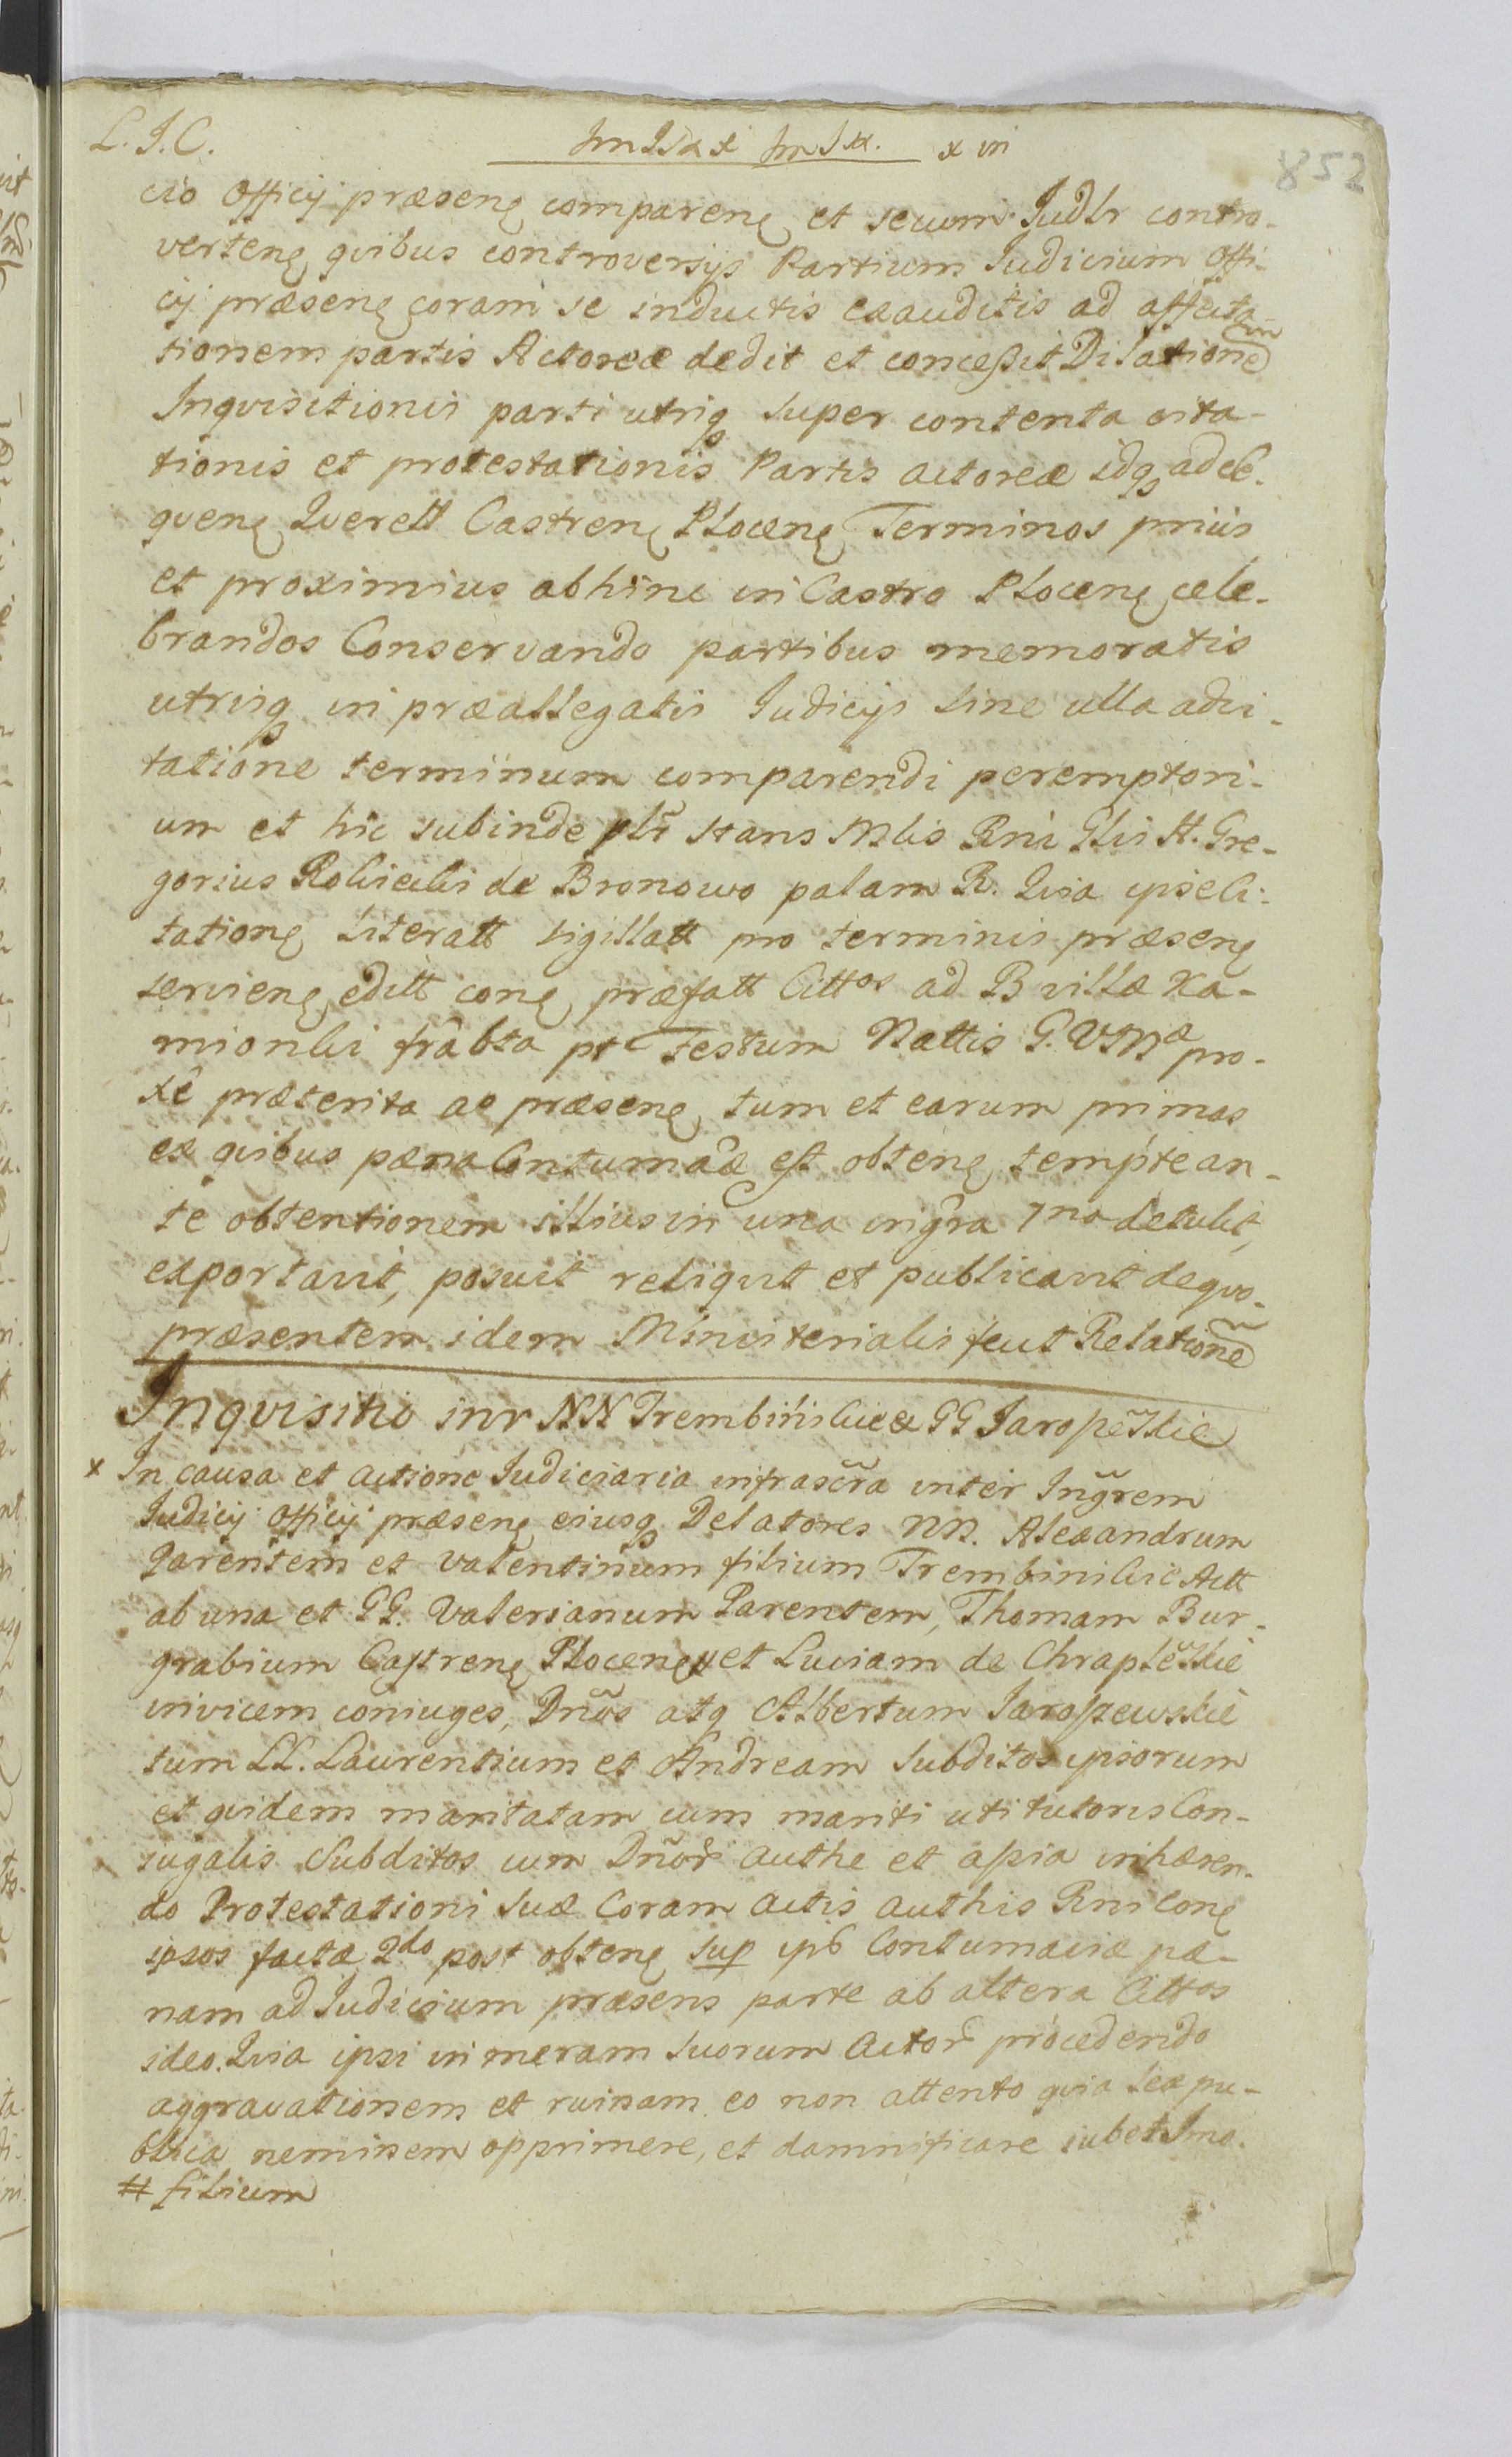 L. J. C.
852
cio Officij præsenȩ comparenȩ et secum Judlr contro-
vertenȩ qvibus controversijs Partium Judicium Offi-
cij præsenȩ coram se inductis exauditis ad affecta-
tionem partis Actoreæ dedit et conceßit Dilationem
Inqvisitionis parti utriq super contenta cita-
tionis et protestationis Partis actoreæ idq ad se-
qvenȩ Qverell Castrenȩ Plocenȩ Terminos priüs
et proximius abhinc in Castro Plocenȩ cele-
brandos Conservando partibus memoratis
utrisq in præallegatis Judicijs sine ulla adci-
tatione terminum comparendi peremptori-
um et hic subinde plr stans Mlis Rni Glis H. Gre-
gorius Rokicki de Bronowo palam R. Qvia ipse Ci-
tationȩ Literatt sigillatt pro terminis præsenȩ
servienȩ editt conȩ præfatt Cittos ad B villæ Ka-
mionki frâbta pt Festum Nattis G. VMæ pro-
xê præterita ac præsenȩ tum et earum primas
ex qvibus pæna Contumâæ est obtenȩ tempre an-
te obtentionem illius in una ingra 7no detulit,
exportavit, posuit reliqvit et publicavit de qvo
præsentem idem Ministerialis fecit Relationem
Inqvisitio inr NN Trembińskie & GG Jaropêskie
x In causa et actione Judiciaria infrascra inter Ingrem
Judicij Officij præsenȩ eiusq Delatores NN. Alexandrum
Parentem et Valentinum filium Trembinskie Actt
ab una et GG. Valerianum Parentem, Thomam Bur-
grabium Castrenȩ Plocenȩ # et Luciam de Chraplêskie
invicem coniuges, Dnos atq Albertum Jaropewskie
tum LL. Laurentium et Andream Subditos ipsorum
et qvidem maritatam cum mariti uti tutoris Con-
jugalis Subditos cum Dnor authe et aßia inhæren-
do Protestationi Suæ Coram actis authis Rni conȩ
ipsos factæ 2do post obtenȩ sup ips Contumaciæ pæ-
nam ad Judicium præsens parte ab altera Cittos
ideo. Qvia ipsi in meram suorum Actor procedendo
aggravationem et ruinam eo non attento qvia Lex pu-
blica neminem opprimere, et damnificare iubet Imo.
# filium